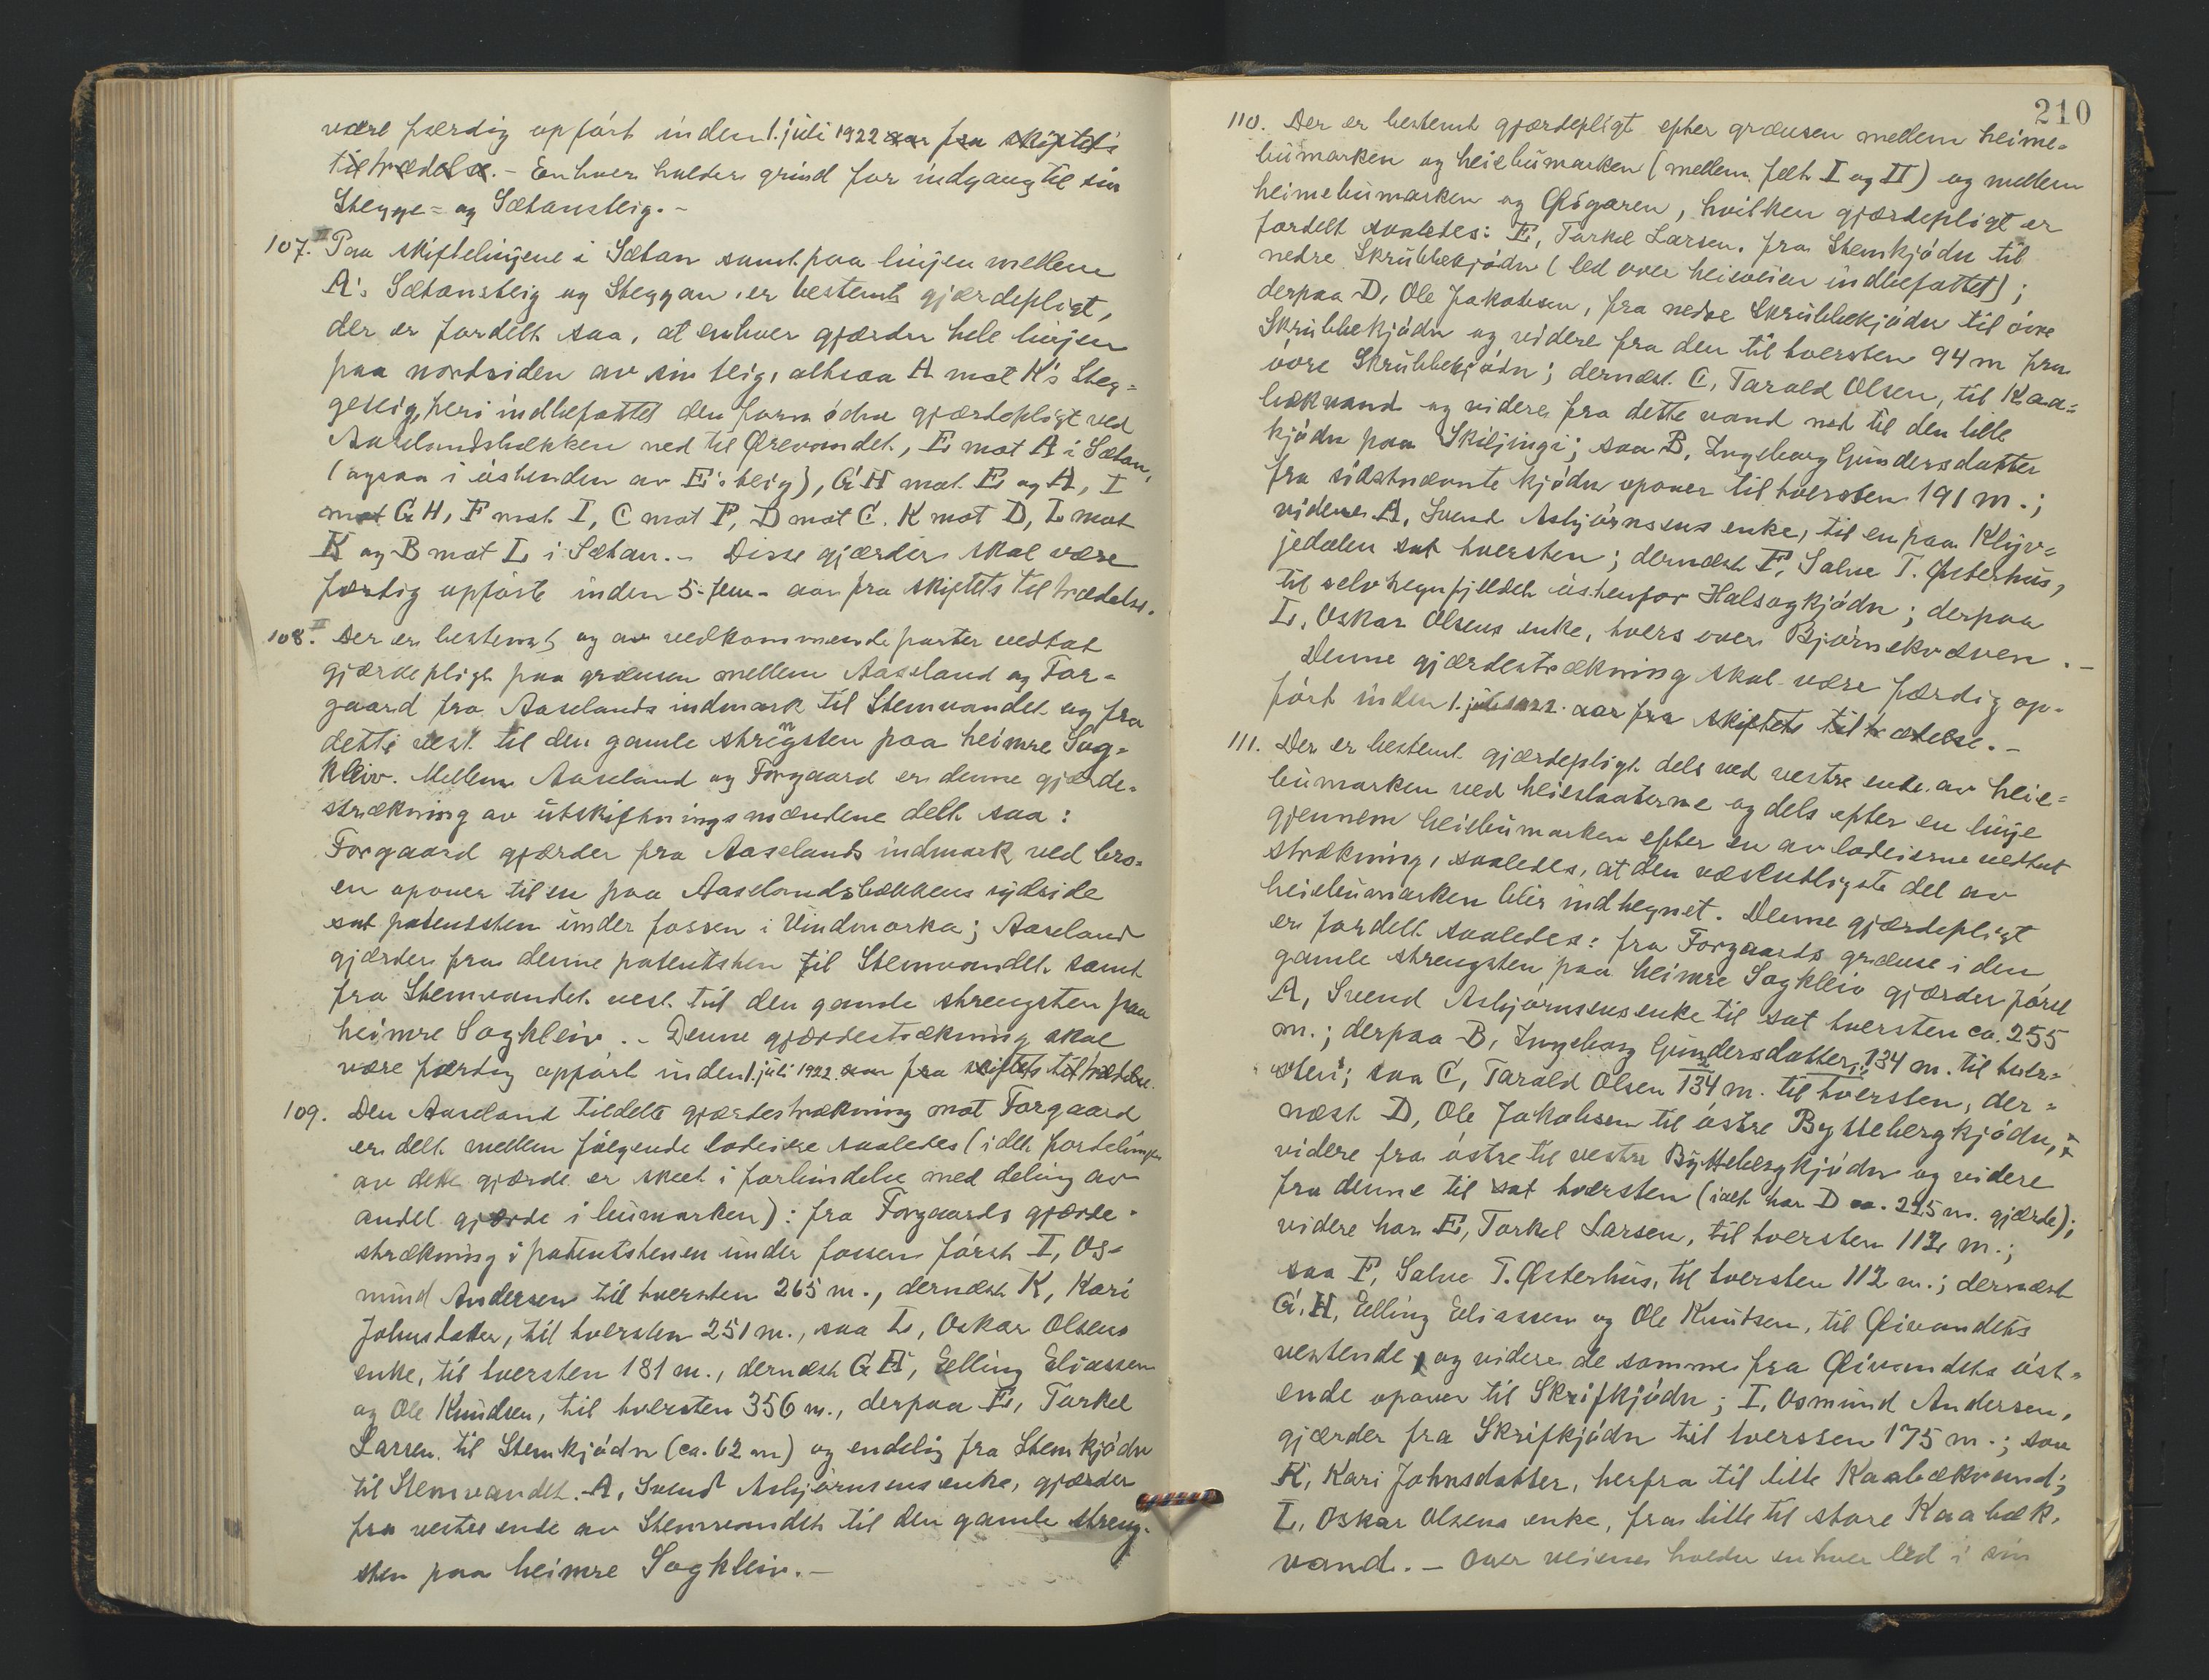 være færdig opført inden 1. juli 1922 aar fra skiftets
tiltrædelse. - Enhver holder grind for indgang til sin
Stegge- og Sætansteig. -
107. Paa skiftelinjene i Sætan samt paa linjen mellem
A's Sætansteig og Steggan, er bestemt gjærdepligt,
der er fordelt saa, at enhver gjærder hele linjen
paa nordsiden av sin teig, altsaa A mot K's Steg-
geteig, heri indbefattet den form ødn gjærdepligt ved
Aaselandsbækken ned til Ørevandet, E mot A i Sætan,
(ogsaa i østenden av E's teig), G H mot E og A, I
mot G H, F mot I, C mot F, D mot C. K mot D, L mot
K og B mot L i Sætan. - Disse gjærder skal være
færdig opførte inden 5 - fem - aar fra skiftets tiltrædelse.
108. Der er bestemt og av vedkommende parter vedtat
gjærdepligt paa grænsen mellem Aaseland og For-
gaard fra Aaselands indmark til Stemvandet og fra
dette vest til den gamle strengsten paa heimre Sog-
kleiv. Mellem Aaseland og Forgaard er denne gjærde-
strækning av utskiftningsmændene delt saa:
Forgaard gjærder fra Aaselands indmark ved bro-
en opover til en paa Aaselandsbækkens sydside
sat patentsten under fossen i Vindmorka; Aaseland
gjærder fra denne patentsten til Stemvandet samt
fra Stemvandet vest til den gamle strengsten paa
heimre Sogkleiv. - Denne gjærdestrækning skal
være færdig opført inden 1. juli 1922. aar fra skiftets tiltrædelse.
109. Den Aaseland tildelte gjærdestrækning mot Forgaard
er delt mellem følgende lodeiere saaledes (idet fordelingen
av dette gjærde er skeet i forbindelse med deling av
andet gjærde i bumarken): fra Forgaards gjærde-
strækning i patentstenen under fossen først I, Os-
mund Andersen til tversten 265 m., dernæst K, Kari
Johnsdatter, til tversten 251 m., saa L, Oskar Olsens
enke, til tversten 181 m., dernæst G H, Elling Eliassen
og Ole Knudsen, til tversten 356 m., derpaa E, Torkel
Larsen til Stemkjødn (ca. 62 m) og endelig fra Stemkjødn
til Stemvandet. A, Svend Asbjørnsens enke, gjærder
fra vestre ende av Stemvandet til den gamle streng-
sten paa heimre Sogkleiv. -
210
110. Der er bestemt gjærdepligt efter grænsen mellem heime-
bumarken og heiebumarken (mellem felt I og II) og mellem
heimebumarken og Øigaren, hvilken gjærdepligt er
fordelt saaledes: E, Torkel Larsen. fra Stemkjødn til
nedre Skrubbekjødn (led over heieveien indbefattet);
derpaa D, Ole Jakobsen, fra nedre Skrubbekjødn til øvre
Skrubbekjødn og videre fra den til tversten 94 m fra
øvre Skrubbekjødn; dernæst C, Tarald Olsen, til Kaa-
bækvand og videre fra dette vand ned til den lille
kjødn paa Skiljingi; saa B, Ingeborg Gundersdatter
fra sidstnævnte kjødn opover til tversten 191 m.;
videre A, Svend Asbjørnsens enke, til en paa Kløv-
jedalen sat tversten; dernæst F, Salve T. Østerhus,
til selvhegnfjeldet østenfor Halsogkjødn; derpaa
L, Oskar Olsens enke, tvers over Bjørnekvæven. -
Denne gjærdestrækning skal være færdig op-
ført inden 1. juli 1922. aar fra skiftets tiltrædelse. -
111. Der er bestemt gjærdepligt dels ved vestre ende av heie-
bumarken ved heieslaaterne og dels efter en linje
gjennem heiebumarken efter en av lodeierne vedtat
strækning, saaledes, at den væsentligste del av
heiebumarken blir indhegnet. Denne gjærdepligt
er fordelt saaledes: fra Forgaards grænse i den
gamle strengsten paa heimre Sogkleiv gjærder først
A, Svend Asbjørnsens enke til sat tversten ca. 255
m.; derpaa B, Ingeborg Gundersdatter, 134 m. til tver-
sten; saa C, Tarald Olsen 134 m. til tversten, der-
næst D, Ole Jakobsen til østre Byttebergkjødn,
videre fra østre til vestre Byttebergkjødn og videre
fra denne til sat tversten (ialt har D ca. 225 m. gjærde);
videre har E, Torkel Larsen, til tversten 112 m.;
saa F, Salve T. Østerhus, til tversten 112 m.; dernæst
G, H, Elling Eliassen og Ole Knutsen, til Øivandets
vestende og videre de samme fra Øivandets øst-
ende opover til Skrifkjødn; I, Osmund Andersen,
gjærder fra Skrifkjødn til tverssen 175 m.; saa
K, Kari Johnsdatter, herfra til lille Kaabækvand;
L, Oskar Olsens enke, fra lille til store Kaabæk-
vand. - Over veiene holder enhver led i sin